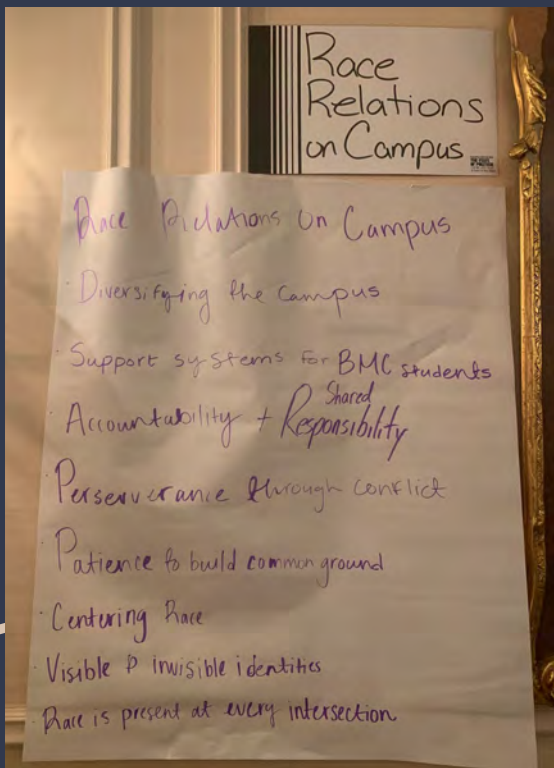 Race
Relations
on Campus
Race Relations on Campus
· Diversifying the campus
· Support systems for BMC students
· Accountability + Shared Responsibility
· Perserverance through conflict
· Patience to build common ground
· Centering Race
· Visible & invisible identities
· Race is present at every intersection